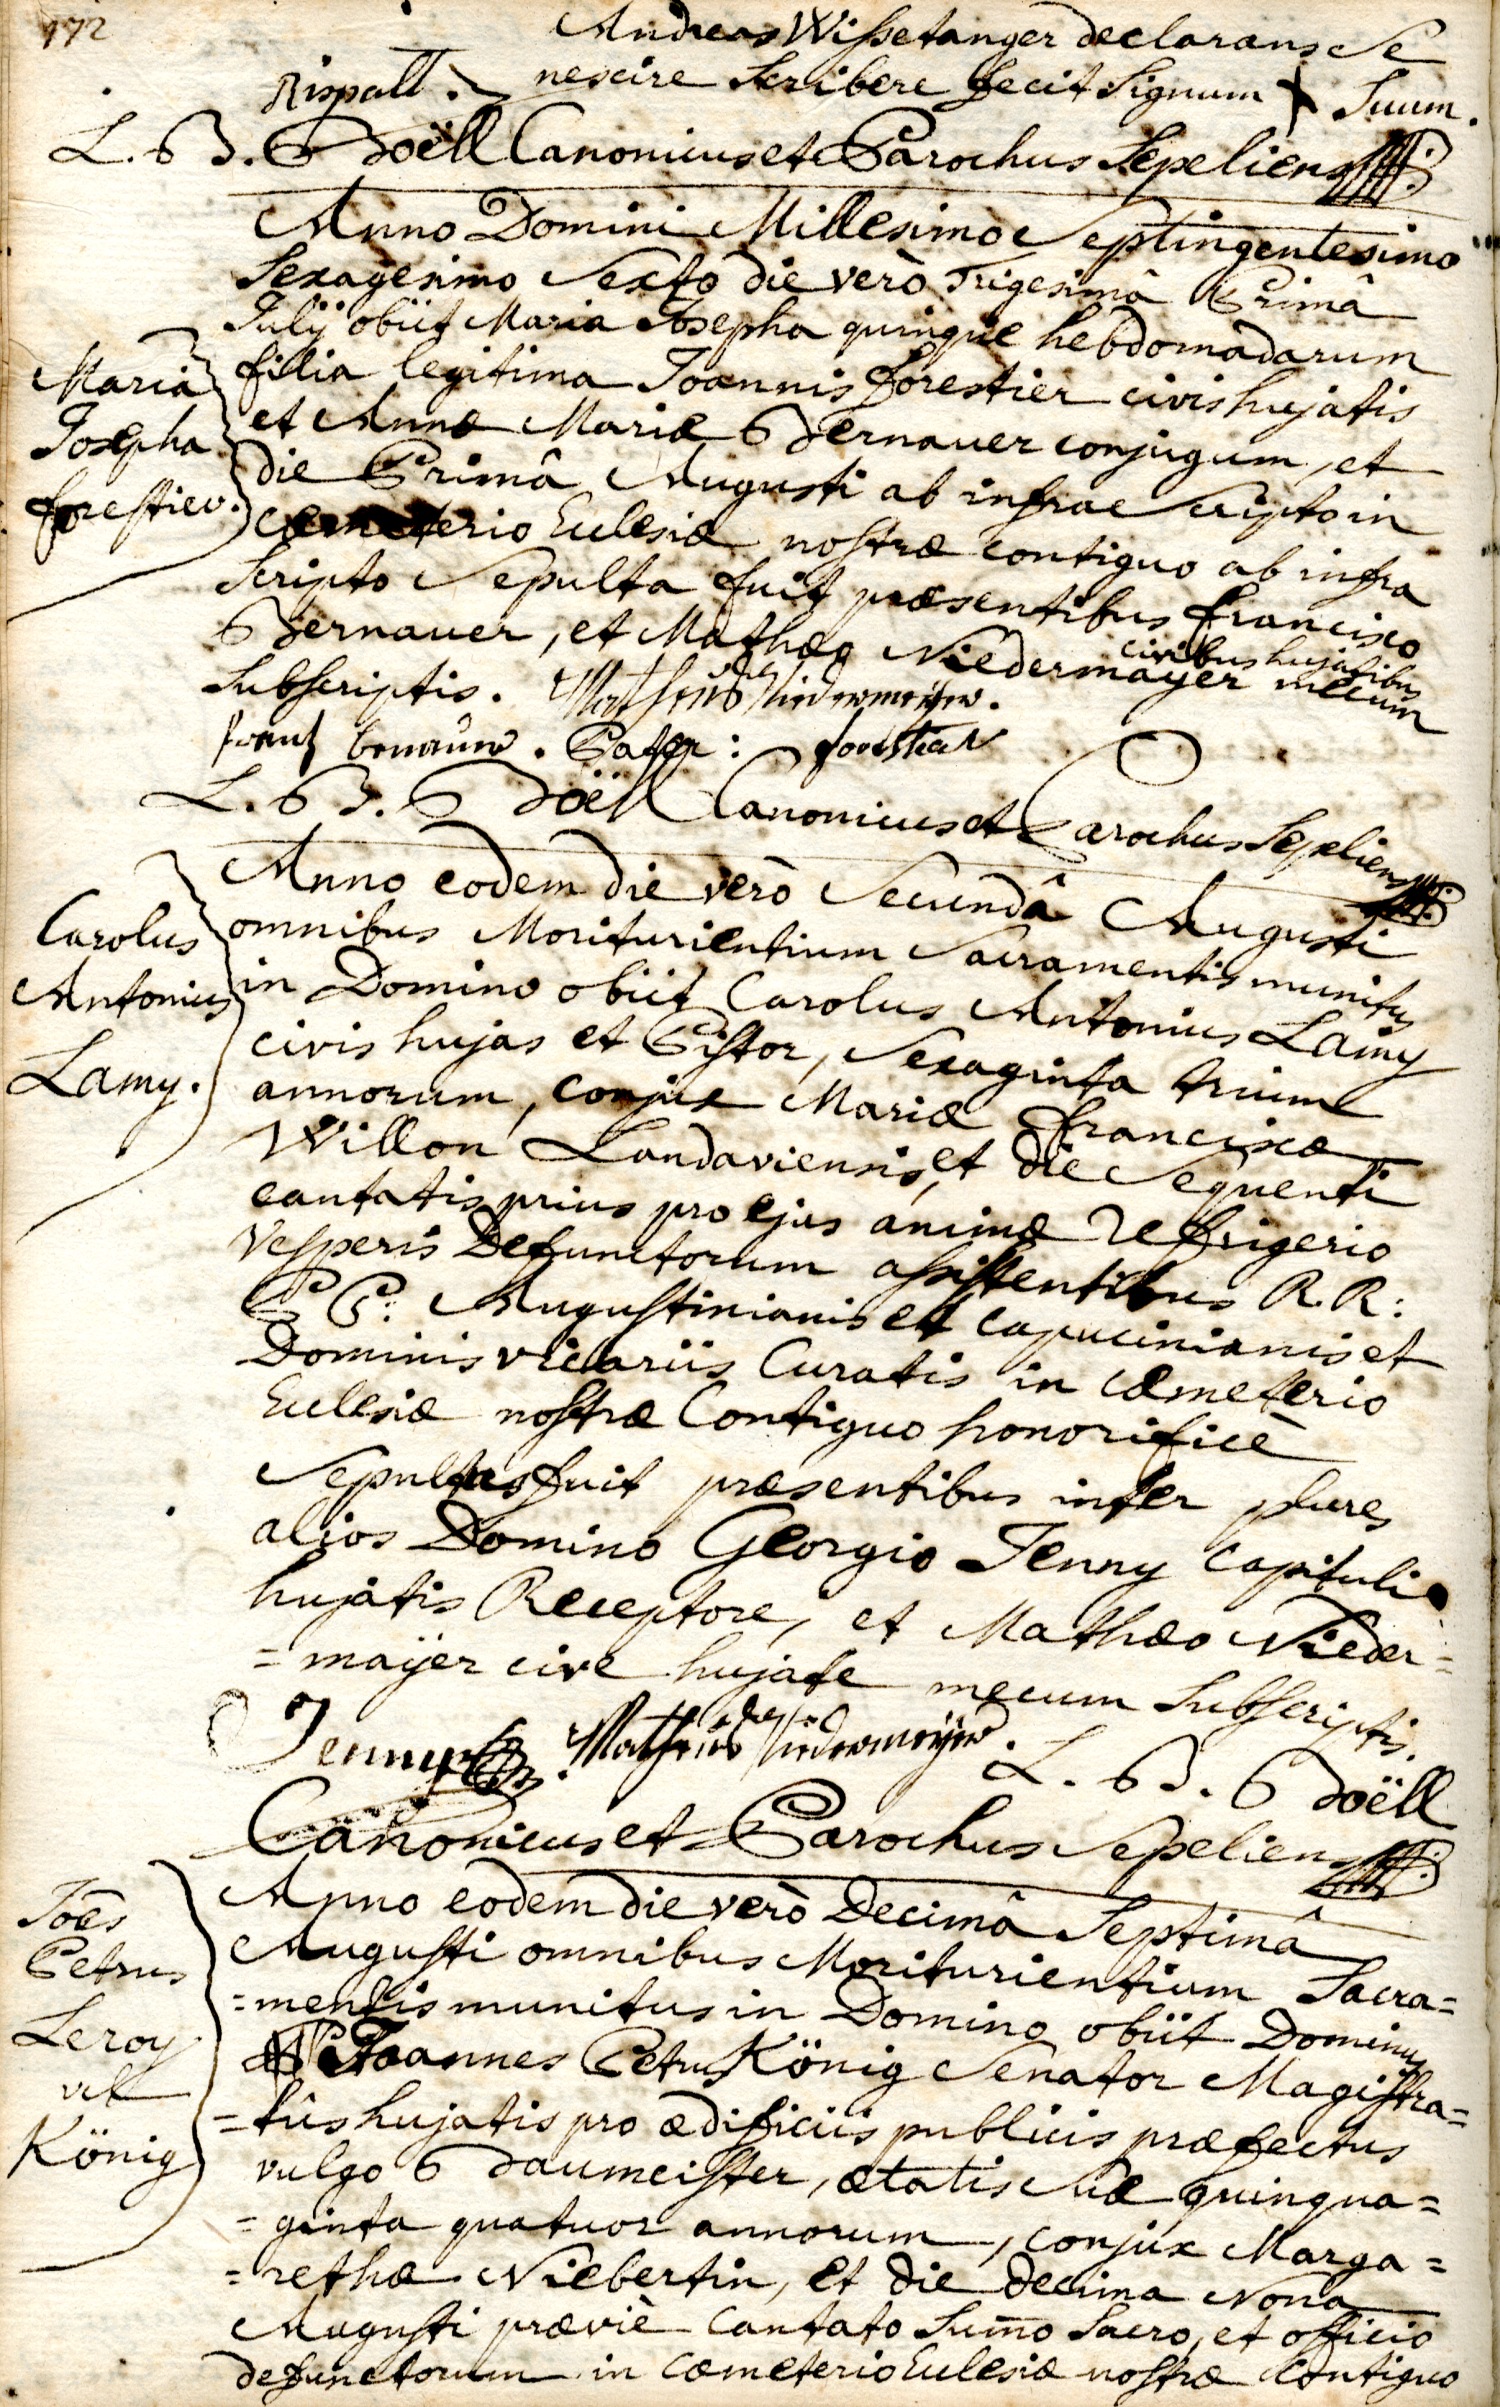 172
Andreas Wissetanger declarans Se
nescire Scribere fecit Signum + Suum.
Rispall.
L. B. Boëll Canonicus et Parochus Sepeliens
Anno Domini Millesimo Septingentesimo
Sexagesimo Sexto die verò Trigesimâ Primâ
Julÿ obiit Maria Josepha quinque hebdomadarum
filia legitima Joannis forestier civis hujatis
et Annæ Mariæ Bernauer conjugum, et
die Primâ Augusti ab infra Scripto in
cæmeterio Eclesiæ nostræ contiguo ab infra
Scripto Sepulta fuit præsentibus francisco
Bernauer, et Mathæo Niedermaÿer civibus hujatibus mecum
Subscriptis. Matheus Niedermeÿer.
frantz bernauer. Pater: forestier
L. B. Boëll Canonicus et Parochus Sepeliens
Maria
Josepha
forestier.
Anno eodem die verò Secundâ Augusti
omnibus Moriturientium Sacramentis munitus
in Domino obiit Carolus Antonius Lamy
civis hujas et Pistor, Sexaginta trium
annorum, conjux Mariæ franciscæ
Willon Landaviensis, et die Sequenti
cantatis prius pro ejus animæ refrigerio
Vesperis Defunctorum assistentibus R. R:
P P: Augustinianis et capucinianis et
Dominis vicariis Curatis in cæmeterio
Eclesiæ nostræ Contiguo honorificè
Sepultus fuit præsentibus inter plures
alios Domino Georgio Jenny capituli
hujatis Receptore, et Mathæo Nieder=
=maÿer cive hujate mecum Subscriptis.
Jenny. Matheus Niedermeÿer.
L. B. Boëll
Canonicus et Parochus Sepeliens
Carolus
Antonius
Lamy.
Anno eodem die verò Decimâ Septimâ
Augusti omnibus Moriturientium Sacra=
=mentis munitus in Domino obiit Dominus
Joannes Petrus König Senator Magistra=
=tûs hujatis pro ædificiis publicis præfectus
vulgo Baumeister, ætatis Suæ quinqua=
=ginta quatuor annorum, conjux Marga=
=rethæ Niebertin, et die decima Nona
Augusti præviè Cantato Sum̄o Sacro, et officio
defunctorum in cæmeterio Eclesiæ nostræ contiguo
Joēs
Petrus
Leroy
vel
König